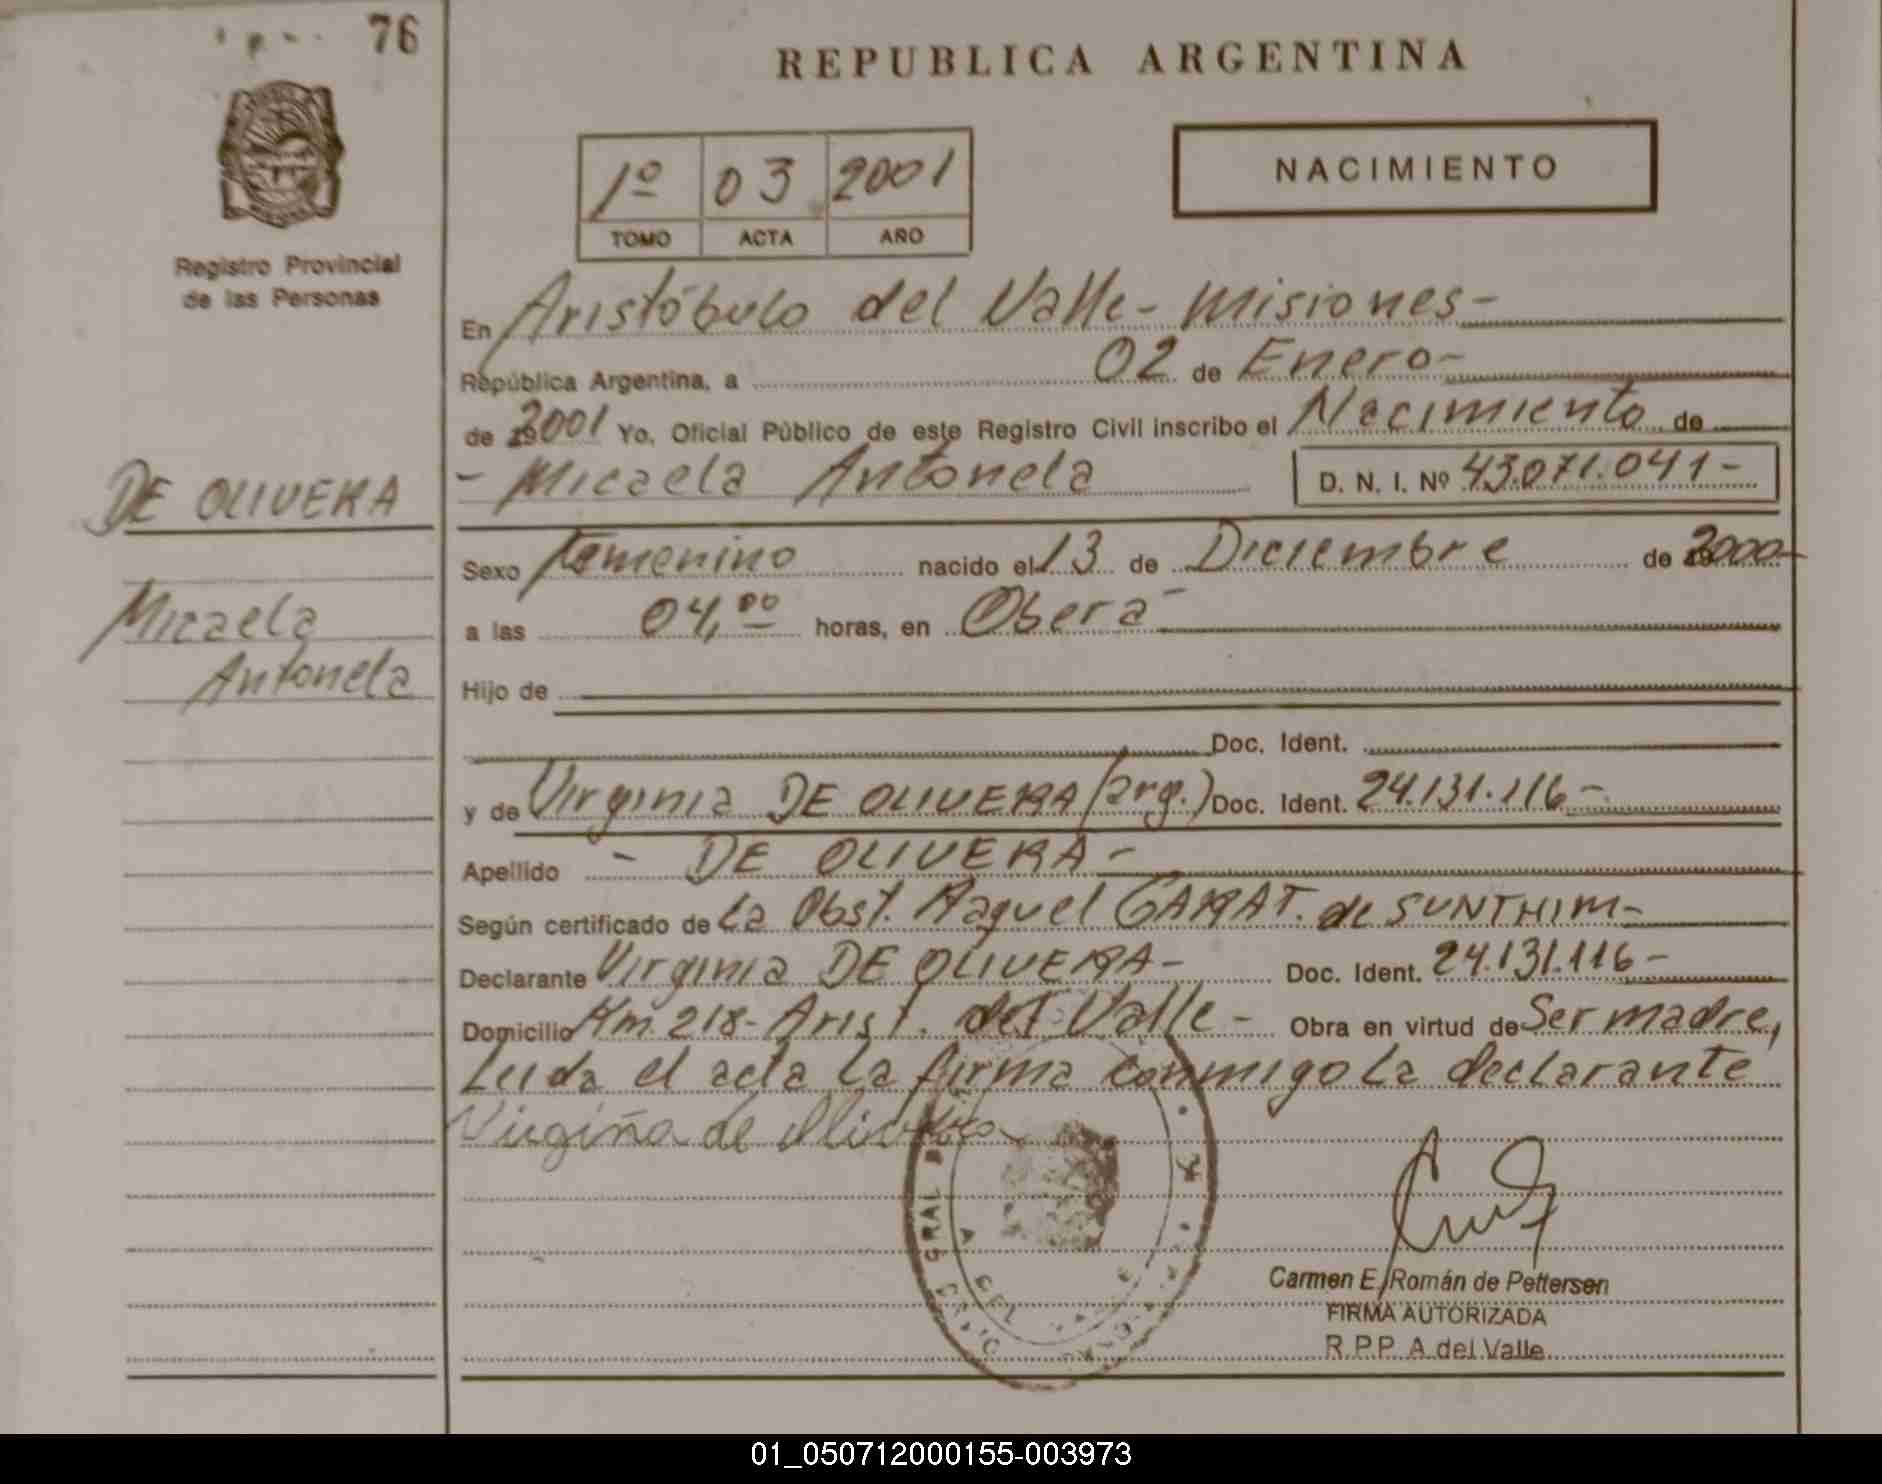 76
REPUBLICA ARGENTINA
1º 03 2001
TOMO ACTA AÑO
NACIMIENTO
Registro Provincial
de las Personas
En Aristóbulo del Valle - Misiones -
República Argentina, a 02 de Enero -
de 2001 Yo, Oficial Público de este Registro Civil inscribo el Nacimiento de
- Micaela Antonela D. N. I. Nº 43.071.041 -
DE OLIVERA
Micaela
Antonela
Sexo Femenino nacido el 13 de Diciembre de 2000 -
a las 04,00 horas, en Oberá -
Hijo de
Doc. Ident.
y de Virginia DE OLIVERA (arg.) Doc. Ident. 24.131.116 -
Apellido - DE OLIVERA -
Según certificado de La Obst. Raquel GARAT. de SUNTHIM -
Declarante Virginia DE OLIVERA - Doc. Ident. 24.131.116 -
Domicilio Km. 218 - Arist. del Valle - Obra en virtud de Ser madre,
Leida el acta la firma conmigo La declarante
Virgiña de Olivera
GRAL
A DEL
Carmen E. Román de Pettersen
FIRMA AUTORIZADA
R.P.P. A del Valle
01_050712000155-003973